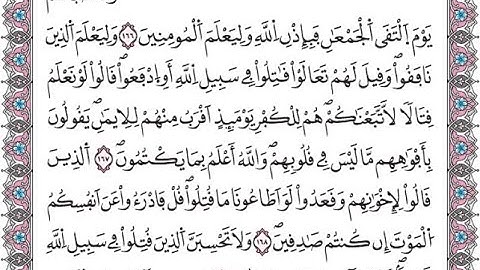 يَوْمَ اَ۬لْتَقَى اَ۬لْجَمْعَٰنِ فَبِإِذْنِ اِ۬للَّهِ وَلِيَعْلَمَ اَ۬لْمُومِنِينَ ١٦٦ وَلِيَعْلَمَ اَ۬لذِينَ
نَافَقُواْۖ وَقِيلَ لَهُمْ تَعَالَوْاْ قَٰتِلُواْ فِے سَبِيلِ اِ۬للَّهِ أَوِ اِ۪دْفَعُواْۖ قَالُواْ لَوْ نَعْلَمُ
قِتَالاٗ لَّاتَّبَعْنَٰكُمْۖ هُمْ لِلْكُفْرِ يَوْمَئِذٍ أَقْرَبُ مِنْهُمْ لِلِايمَٰنِۖ يَقُولُونَ
بِأَفْوَٰهِهِم مَّا لَيْسَ فِے قُلُوبِهِمْۖ وَاللَّهُ أَعْلَمُ بِمَا يَكْتُمُونَۖ ١٦٧ اَ۬لذِينَ
قَالُواْ لِإِخْوَٰنِهِمْ وَقَعَدُواْ لَوَ اَطَاعُونَا مَا قُتِلُواْۖ قُلْ فَادْرَءُواْ عَنَ اَنفُسِكُمُ
اُ۬لْمَوْتَ إِن كُنتُمْ صَٰدِقِينَۖ ١٦٨ وَلَا تَحْسِبَنَّ اَ۬لذِينَ قُتِلُواْ فِے سَبِيلِ اِ۬للَّهِ